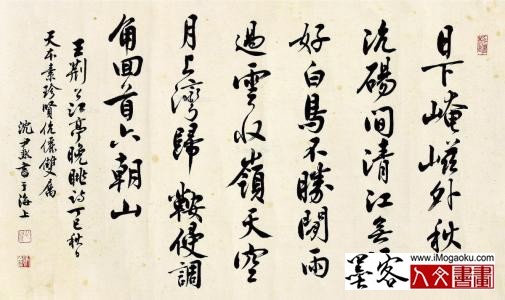 日下崦嵫外秋
沆碭間清江無
好白鳥不勝閒雨
過雲收嶺天空
月上灣歸鞍侵調
角回首六朝山
王荊公江亭晚眺詩丁巳秋日
天木素珍賢伉儷雙屬
沈尹默書于海上
墨客
www.iMogaoku.com
人文書畫